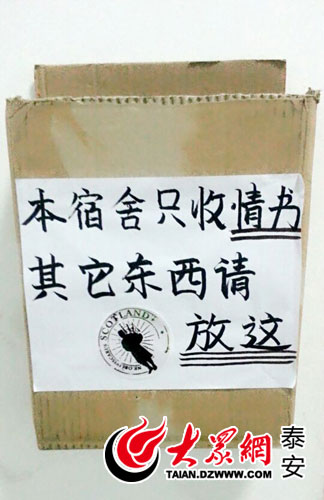 本宿舍只收情书
其它东西请
放这
SCOTLAND
大眾網
泰安
TAIAN.DZWWW.COM